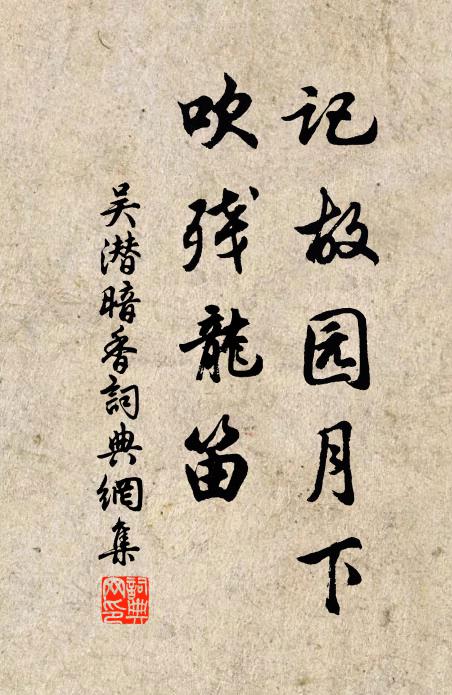 记故园月下
吹残龍笛
吴潜暗香詞典網集
詞典
网印